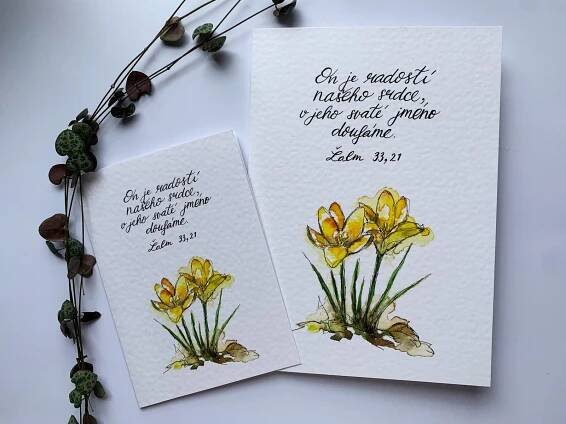 On je radostí
našeho srdce,
v jeho svaté jméno
doufáme.
Žalm 33,21
On je radostí
našeho srdce,
v jeho svaté jméno
doufáme.
Žalm 33,21